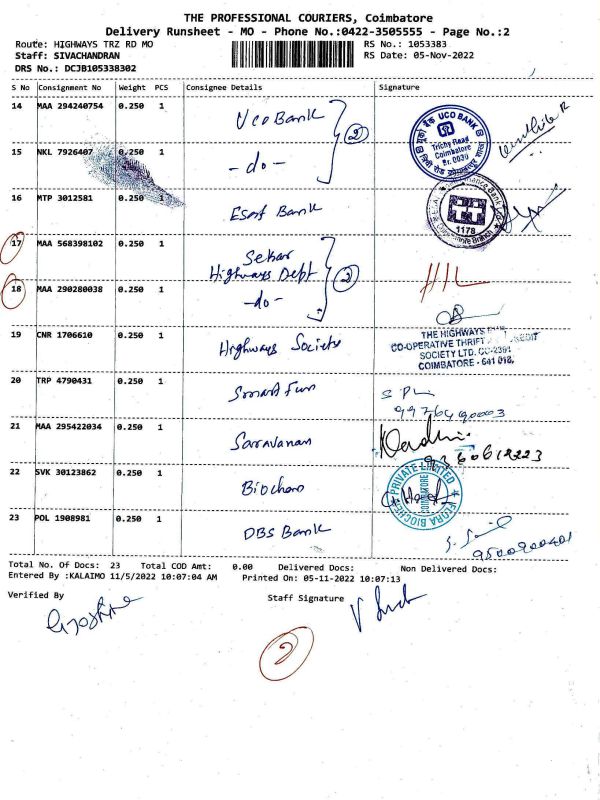 THE PROFESSIONAL COURIERS, Coimbatore
Delivery Runsheet - MO - Phone No.:0422-3505555 - Page No.:2
Route: HIGHWAYS TRZ RD MO
RS No.: 1053383
Staff: SIVACHANDRAN
RS Date: 05-Nov-2022
DRS No.: DCJB105338302
S No Consignment No Weight PCS Consignee Details Signature
14 MAA 294240754 0.250 1 Uco Bank
2
UCO BANK
Trichy Road
Coimbatore
Br. 0030
15 NKL 7926407 0.250 1 -do-
16 MTP 3012581 0.250 1 Esaf Bank
1178
17 MAA 568398102 0.250 1 Sekar
Highways Dept
2
18 MAA 290280038 0.250 1 -do-
19 CNR 1706610 0.250 1 Highways Society
THE HIGHWAYS
CO-OPERATIVE THRIFT CREDIT
SOCIETY LTD. CC-2391
COIMBATORE - 641 018.
20 TRP 4790431 0.250 1 Smart Fun
21 MAA 295422034 0.250 1 Saravanan
9360612223
22 SVK 30123862 0.250 1 Biochem
FLORA BIOCHEM PRIVATE LIMITED
COIMBATORE
23 POL 1908981 0.250 1 DBS Bank
9500900401
Total No. Of Docs: 23 Total COD Amt: 0.00 Delivered Docs: Non Delivered Docs:
Entered By :KALAIMO 11/5/2022 10:07:04 AM Printed On: 05-11-2022 10:07:13
Verified By
Staff Signature
2